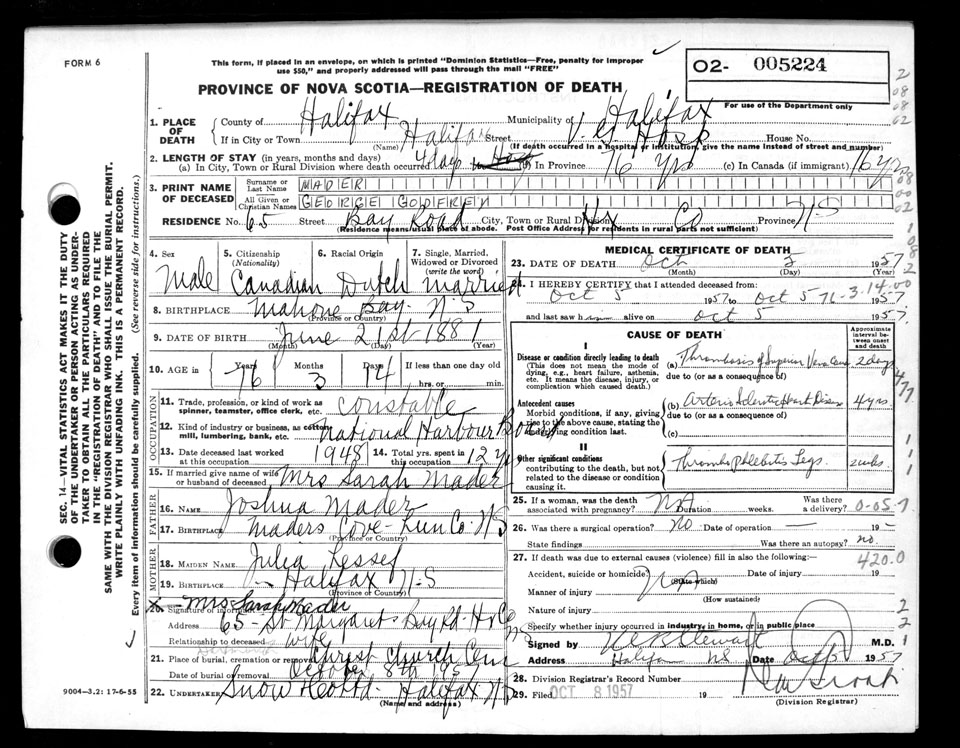 FORM 6
This form, if placed in an envelope, on which is printed "Dominion Statistics—Free, penalty for improper
use $50," and properly addressed will pass through the mail "FREE"
O2- 005224
For use of the Department only
PROVINCE OF NOVA SCOTIA—REGISTRATION OF DEATH
1. PLACE OF DEATH
County of Halifax Municipality of Halifax
If in City or Town Halifax (Name) Street V. G. Hosp House No.
(If death occurred in a hospital or institution, give the name instead of street and number)
2. LENGTH OF STAY (in years, months and days)
(a) In City, Town or Rural Division where death occurred 4 days (b) In Province 76 yrs (c) In Canada (if immigrant) 76 yrs
3. PRINT NAME OF DECEASED
Surname or Last Name MADER
All Given or Christian Names GEORGE GODFREY
RESIDENCE No. 65 Street Bay Road City, Town or Rural Division Hx Co Province N-S
(Residence means usual place of abode. Post Office Address for residents in rural parts not sufficient)
4. Sex Male
5. Citizenship (Nationality) Canadian
6. Racial Origin Dutch
7. Single, Married, Widowed or Divorced (write the word) married
8. BIRTHPLACE Mahone Bay N-S
(Province or Country)
9. DATE OF BIRTH June 21st 1881
(Month) (Day) (Year)
10. AGE in Years 76 Months 3 Days 14 If less than one day old
hrs. or min.
OCCUPATION
11. Trade, profession, or kind of work as spinner, teamster, office clerk, etc. constable
12. Kind of industry or business, as cotton mill, lumbering, bank, etc. National Harbour Board
13. Date deceased last worked at this occupation 1948 14. Total yrs. spent in this occupation 12 yrs
15. If married give name of wife or husband of deceased Mrs Sarah Mader
FATHER
16. NAME Joshua Mader
17. BIRTHPLACE Maders Cove - Lun Co. N-S
(Province or Country)
MOTHER
18. MAIDEN NAME Julia
19. BIRTHPLACE Halifax N-S
(Province or Country)
20. Signature of informant Mrs Sarah Mader
Address 65 - St Margarets Bay Rd - Hx Co NS
Relationship to deceased wife
21. Place of burial, cremation or removal Christ Church Cem
Date of burial or removal October 8th 195
22. UNDERTAKER Snow & Co Ltd - Halifax N-S
(Name and address)
9004-3.2: 17-6-55
SEC. 14—VITAL STATISTICS ACT MAKES IT THE DUTY
OF THE UNDERTAKER OR PERSON ACTING AS UNDERTAKER
TO OBTAIN ALL THE PARTICULARS REQUIRED
IN THE "REGISTRATION OF DEATH" AND TO FILE THE
SAME WITH THE DIVISION REGISTRAR WHO SHALL ISSUE THE BURIAL PERMIT.
WRITE PLAINLY WITH UNFADING INK. THIS IS A PERMANENT RECORD.
Every item of information should be carefully supplied. (See reverse side for instructions.)
MEDICAL CERTIFICATE OF DEATH
23. DATE OF DEATH Oct 5 1957
(Month) (Day) (Year)
24. I HEREBY CERTIFY that I attended deceased from:
Oct 5 1957 to Oct 5 76-3-14.00 1957
and last saw him alive on Oct 5 1957
CAUSE OF DEATH
Approximate interval between onset and death
I
Disease or condition directly leading to death
(This does not mean the mode of dying, e.g., heart failure, asthenia, etc. It means the disease, injury, or complication which caused death.)
(a) Thrombosis of Superior Vena Cava 2 days
due to (or as a consequence of)
Antecedent causes
Morbid conditions, if any, giving rise to the above cause, stating the underlying condition last.
(b) Arteriosclerotic Heart Disease 4 yrs
due to (or as a consequence of)
(c)
II
Other significant conditions
contributing to the death, but not related to the disease or condition causing it.
Thrombophlebitis Legs 2 wks
25. If a woman, was the death associated with pregnancy? NA Duration weeks. Was there a delivery? 0-05-7
26. Was there a surgical operation? No Date of operation — 19 —
State findings Was there an autopsy? no.
27. If death was due to external causes (violence) fill in also the following:— 420.0
Accident, suicide or homicide NA (State which) Date of injury 19
Manner of injury
(How sustained)
Nature of injury
Specify whether injury occurred in industry, in home, or in public place
Signed by Stewart M.D.
Address Halifax NS Date Oct 5 1957
28. Division Registrar's Record Number
29. Filed OCT 8 1957 19
(Division Registrar)